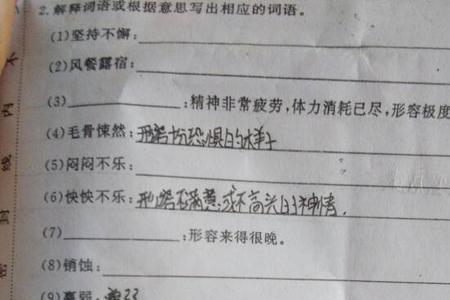 2.解释词语或根据意思写出相应的词语。
(1)坚持不懈:
(2)风餐露宿:
(3) :精神非常疲劳,体力消耗已尽,形容极度
(4)毛骨悚然:形容十分恐惧的样子
(5)闷闷不乐:
(6)怏怏不乐:形容不满意或不高兴的神情.
(7) :形容来得很晚。
(8)销蚀:
(9)羸弱:
不
内
线
封
密